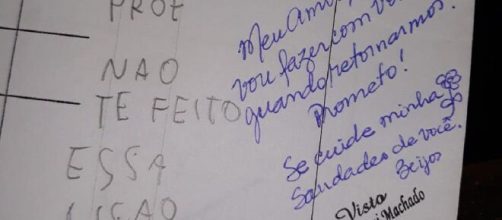 PROF
NAO
TE FEITO
ESSA
LICAO
Meu Am
vou fazer com vo
quando retornarmos.
Prometo!
Se cuide minha
Saudades de você.
Beijos
Visto
Machado